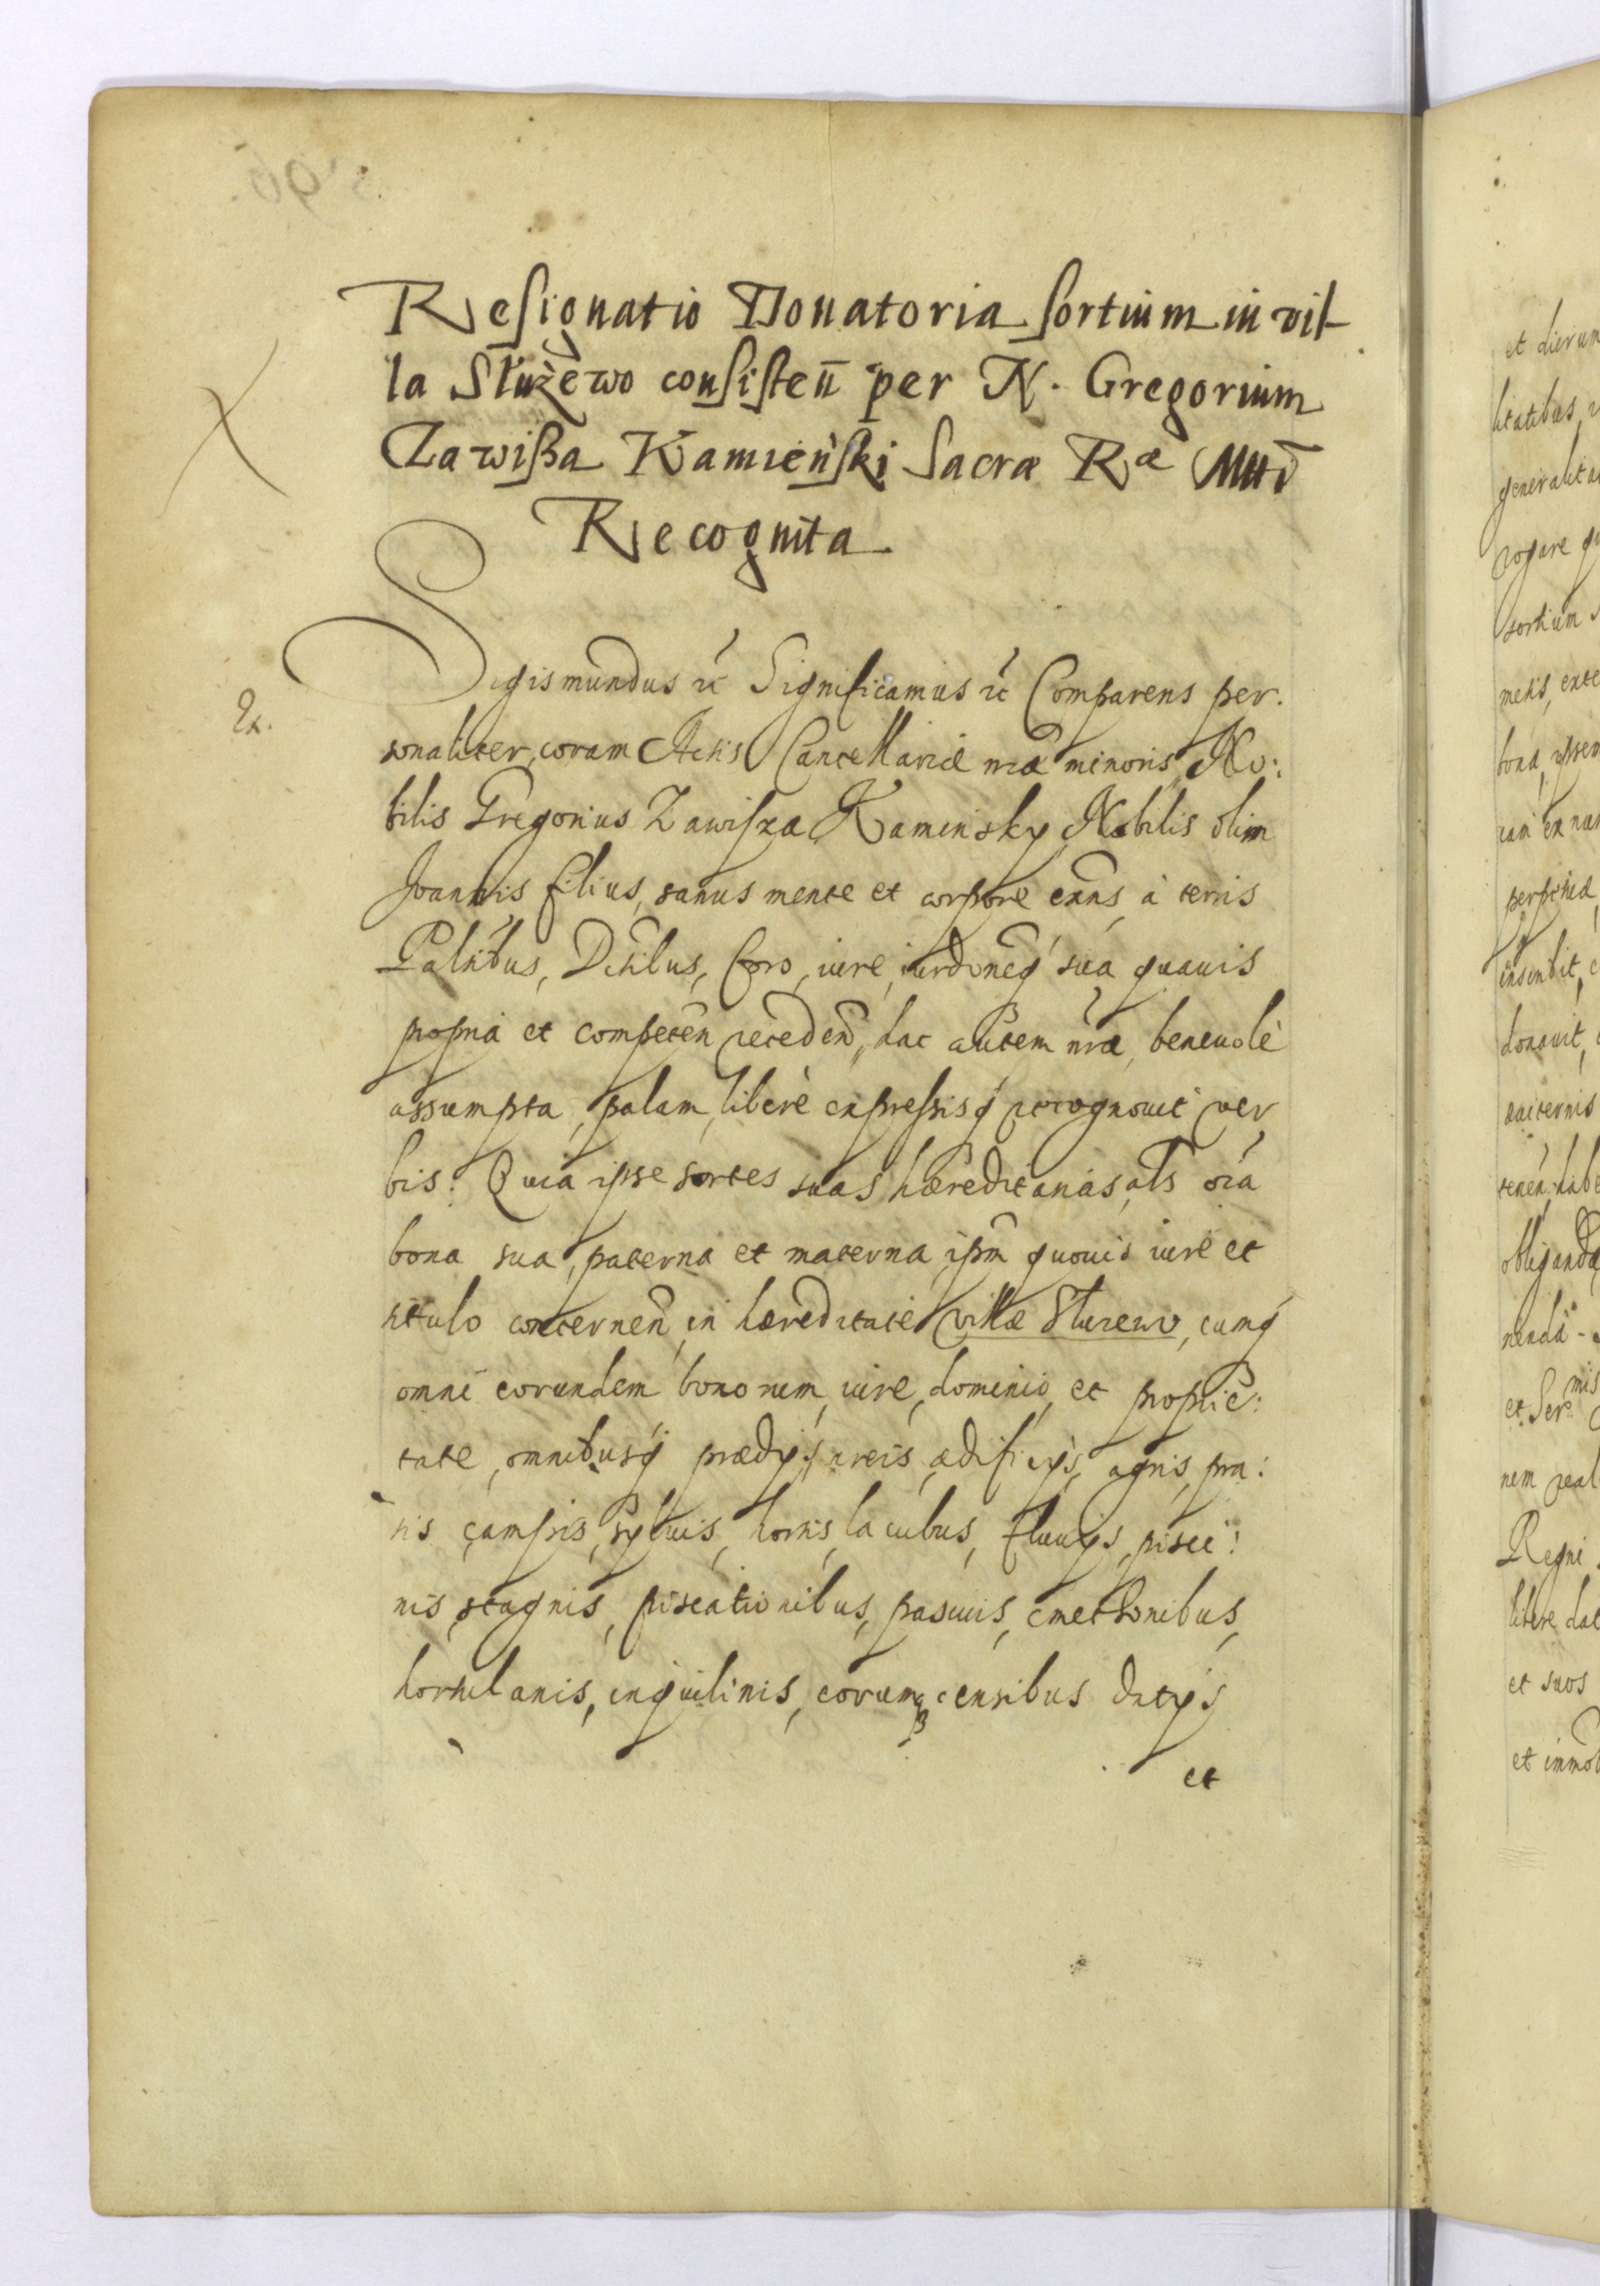 Resignatio Donatoria sortium in vil-
la Służewo consisteñ per N. Gregorium
Zawißa Kamieński Sacræ Ræ Mtti
Recognita
Sigismundus &c Significamus &c Comparens per:
sonaliter, coram Actis Cancellariæ nr̃æ minoris, No:
bilis Gregorius Zawisza Kaminsky, Nobilis olim
Joannis filius, sanus mente et corpore exñs, à terris
Palnibus, Dcńibus, foro, iure, iurdoneq́ sua quavis
propria et competeñ recedeñ, hac autem nr̃æ, benevolè
assumpta, palam, liberè expressisq́ recognovit ver
bis. Quia ipse sortes suas hæreditarias, als oĩa
bona sua, paterna et materna ipsm̃ quovis iure et
titulo concerneñ, in hæreditate villæ Sluzewo, cumq́
omni eorundem bonorum, iure, dominio, et proprie:
tate, omnibusq́ prædijs, areis, ædificijs, agris, pra:
tis, campis, sylvis, hortis, lacubus, fluvijs, pisci:
nis, stagnis, piscationibus, pascuis, cmethonibus,
hortulanis, inquilinis, eorumq3 censibus datijs
et
et dierum
litatibus,
generalita
rogare
sortium
metis, exte
bona,
donavit,
tenen, habe
obliganda
nem real
Regni
libere dat
et suos
et immob